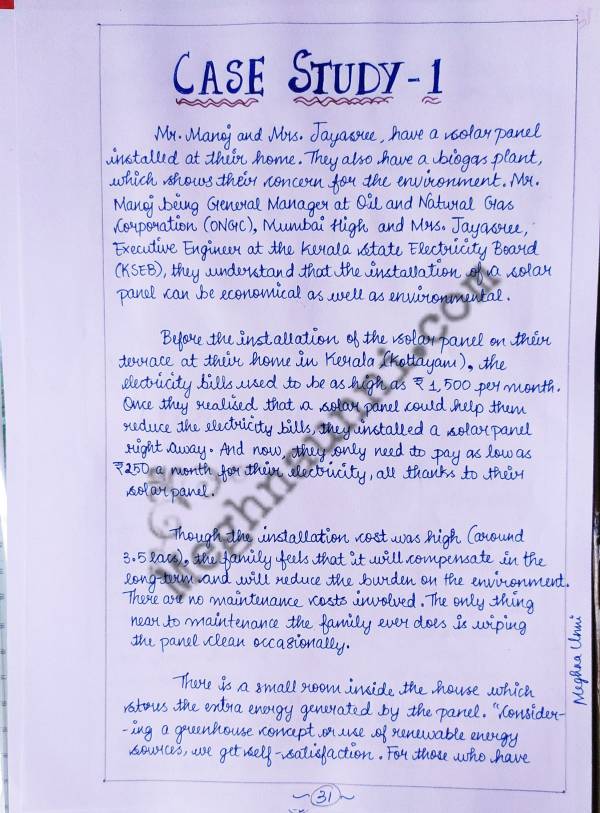 31
CASE STUDY - 1
Mr. Manoj and Mrs. Jayasree, have a solar panel
installed at their home. They also have a biogas plant,
which shows their concern for the environment. Mr.
Manoj being General Manager at Oil and Natural Gas
Corporation (ONGC), Mumbai High and Mrs. Jayasree,
Executive Engineer at the Kerala State Electricity Board
(KSEB), they understand that the installation of a solar
panel can be economical as well as environmental.
Before the installation of the solar panel on their
terrace at their home in Kerala (Kottayam), the
electricity bills used to be as high as ₹ 1,500 per month.
Once they realised that a solar panel could help them
reduce the electricity bills, they installed a solar panel
right away. And now, they only need to pay as low as
₹250 a month for their electricity, all thanks to their
solar panel.
Though the installation cost was high (around
3.5 lacs), the family feels that it will compensate in the
long-term and will reduce the burden on the environment.
There are no maintenance costs involved. The only thing
near to maintenance the family ever does is wiping
the panel clean occasionally.
There is a small room inside the house which
stores the extra energy generated by the panel. "Consider-
-ing a greenhouse concept or use of renewable energy
sources, we get self-satisfaction. For those who have
Meghna Unni
~ 31 ~
Meghnaunni.com